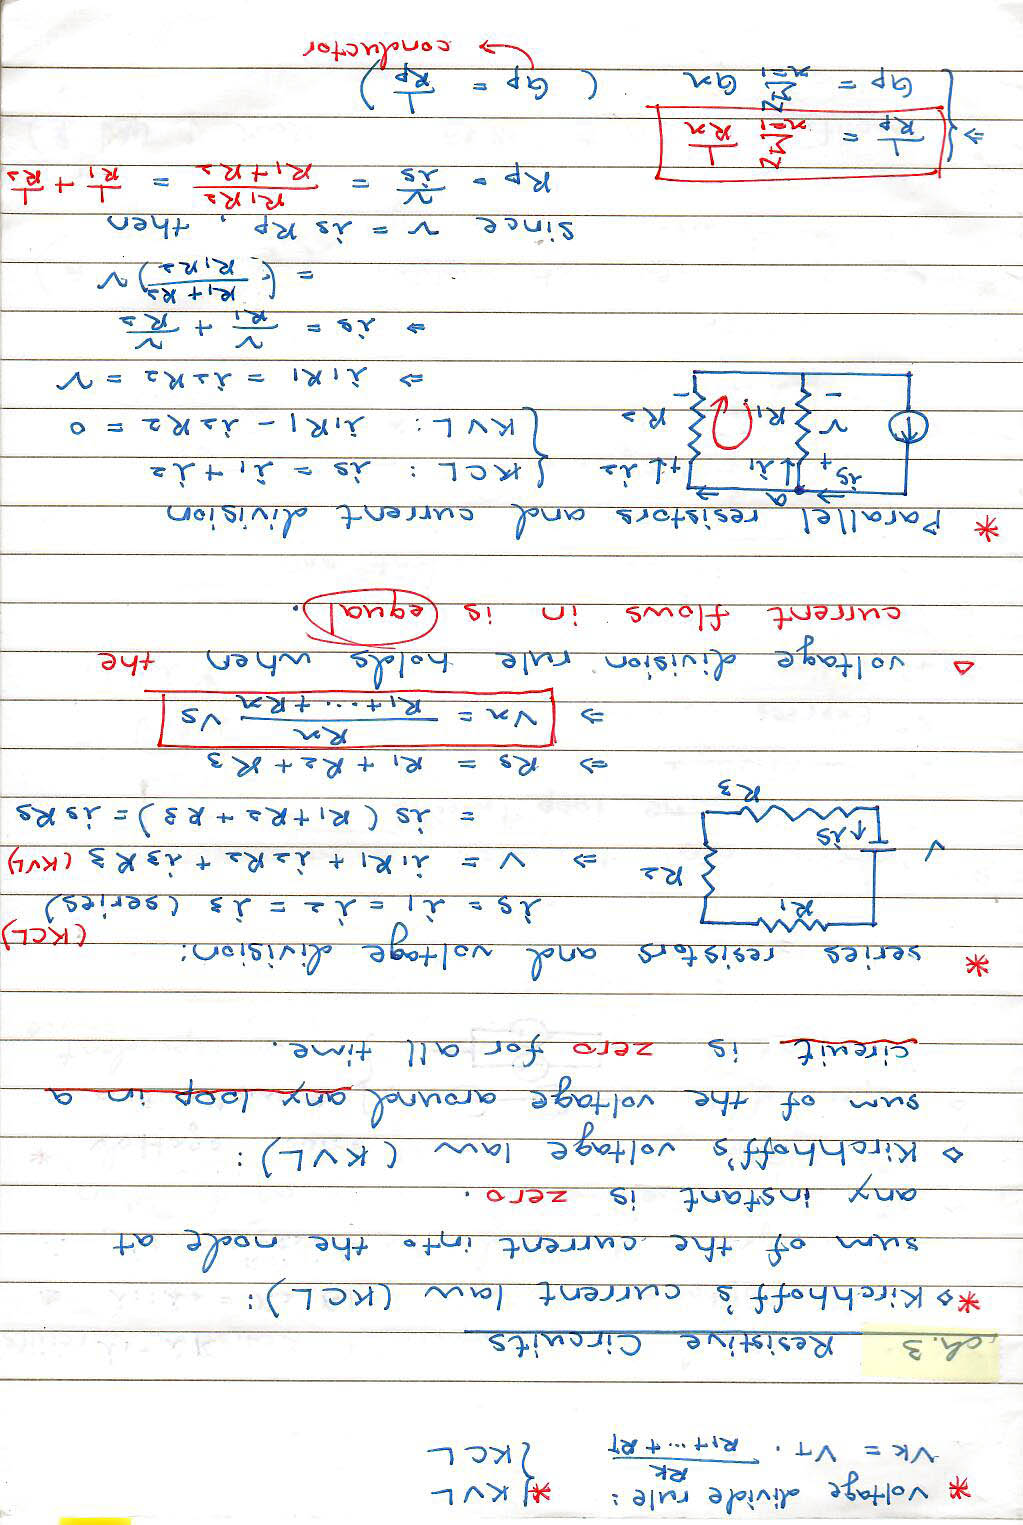 * voltage divide rule: * { KVL
VK = VT · RK / (R1+···+RT) { KCL
ch.3 Resistive Circuits
*◇ Kirchhoff's current law (KCL):
sum of the current into the node at
any instant is zero.
◇ Kirchhoff's voltage law (KVL):
sum of the voltage around any loop in a
circuit is zero for all time.
* series resistors and voltage division: (KCL)
is = i1 = i2 = i3 (series)
⇒ V = i1R1 + i2R2 + i3R3 (KVL)
= is (R1+R2+R3) = isRs
⇒ Rs = R1+R2+R3
⇒ Vn = Rn / (R1+···+Rn) Vs
R1
R2
V is
R3
△ voltage division rule holds when the
current flows in is equal.
* Parallel resistors and current division
{ KCL: is = i1 + i2
{ KVL: i1R1 - i2R2 = 0
⇒ i1R1 = i2R2 = v
⇒ is = v/R1 + v/R2
= ((R1+R2) / R1R2) v
is a
+ i1 + i2
v R1 R2
- -
since v = is Rp, then
Rp = v/is = R1R2 / (R1+R2) = 1/R1 + 1/R2
⇒ { 1/Rp = N Σ n=1 1/Rn
{ Gp = N Σ n=1 Gn ( Gp = 1/Rp )
→ conductor